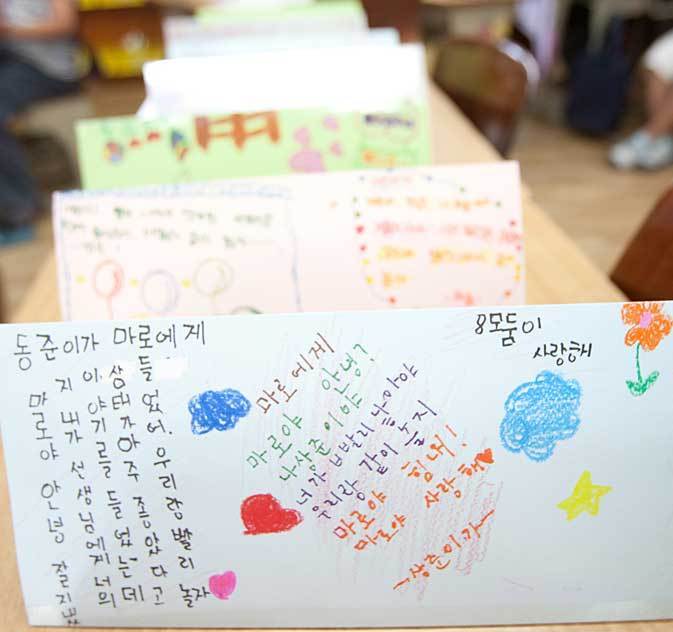 동준이가 마로에게
마로야 안녕 잘지냈
지 내가 선생님에게 너의
이야기를 들었는데
삼태가 아주 좋았다고
들었어. 우리랑 빨리 놀자
마로에게
마로야 안녕?
나상준이야
너가 빨리 나아야
우리랑 같이 놀지
마로야 힘내!
마로야 사랑해
-상준이가-
8모둠이
사랑해